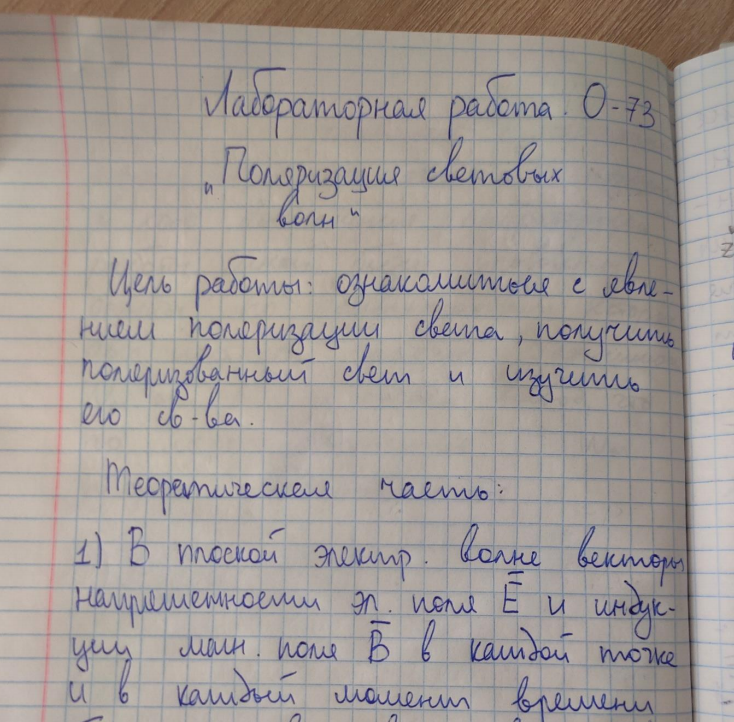 Лабораторная работа О-73
"Поляризация световых
волн"
Цель работы: ознакомиться с явле-
нием поляризации света, получить
поляризованный свет и изучить
его св-ва.
Теоретическая часть:
1) В плоской электр. волне векторы
напряженности эл. поля E̅ и индук-
ции магн. поля B̅ в каждой точке
и в каждый момент времени